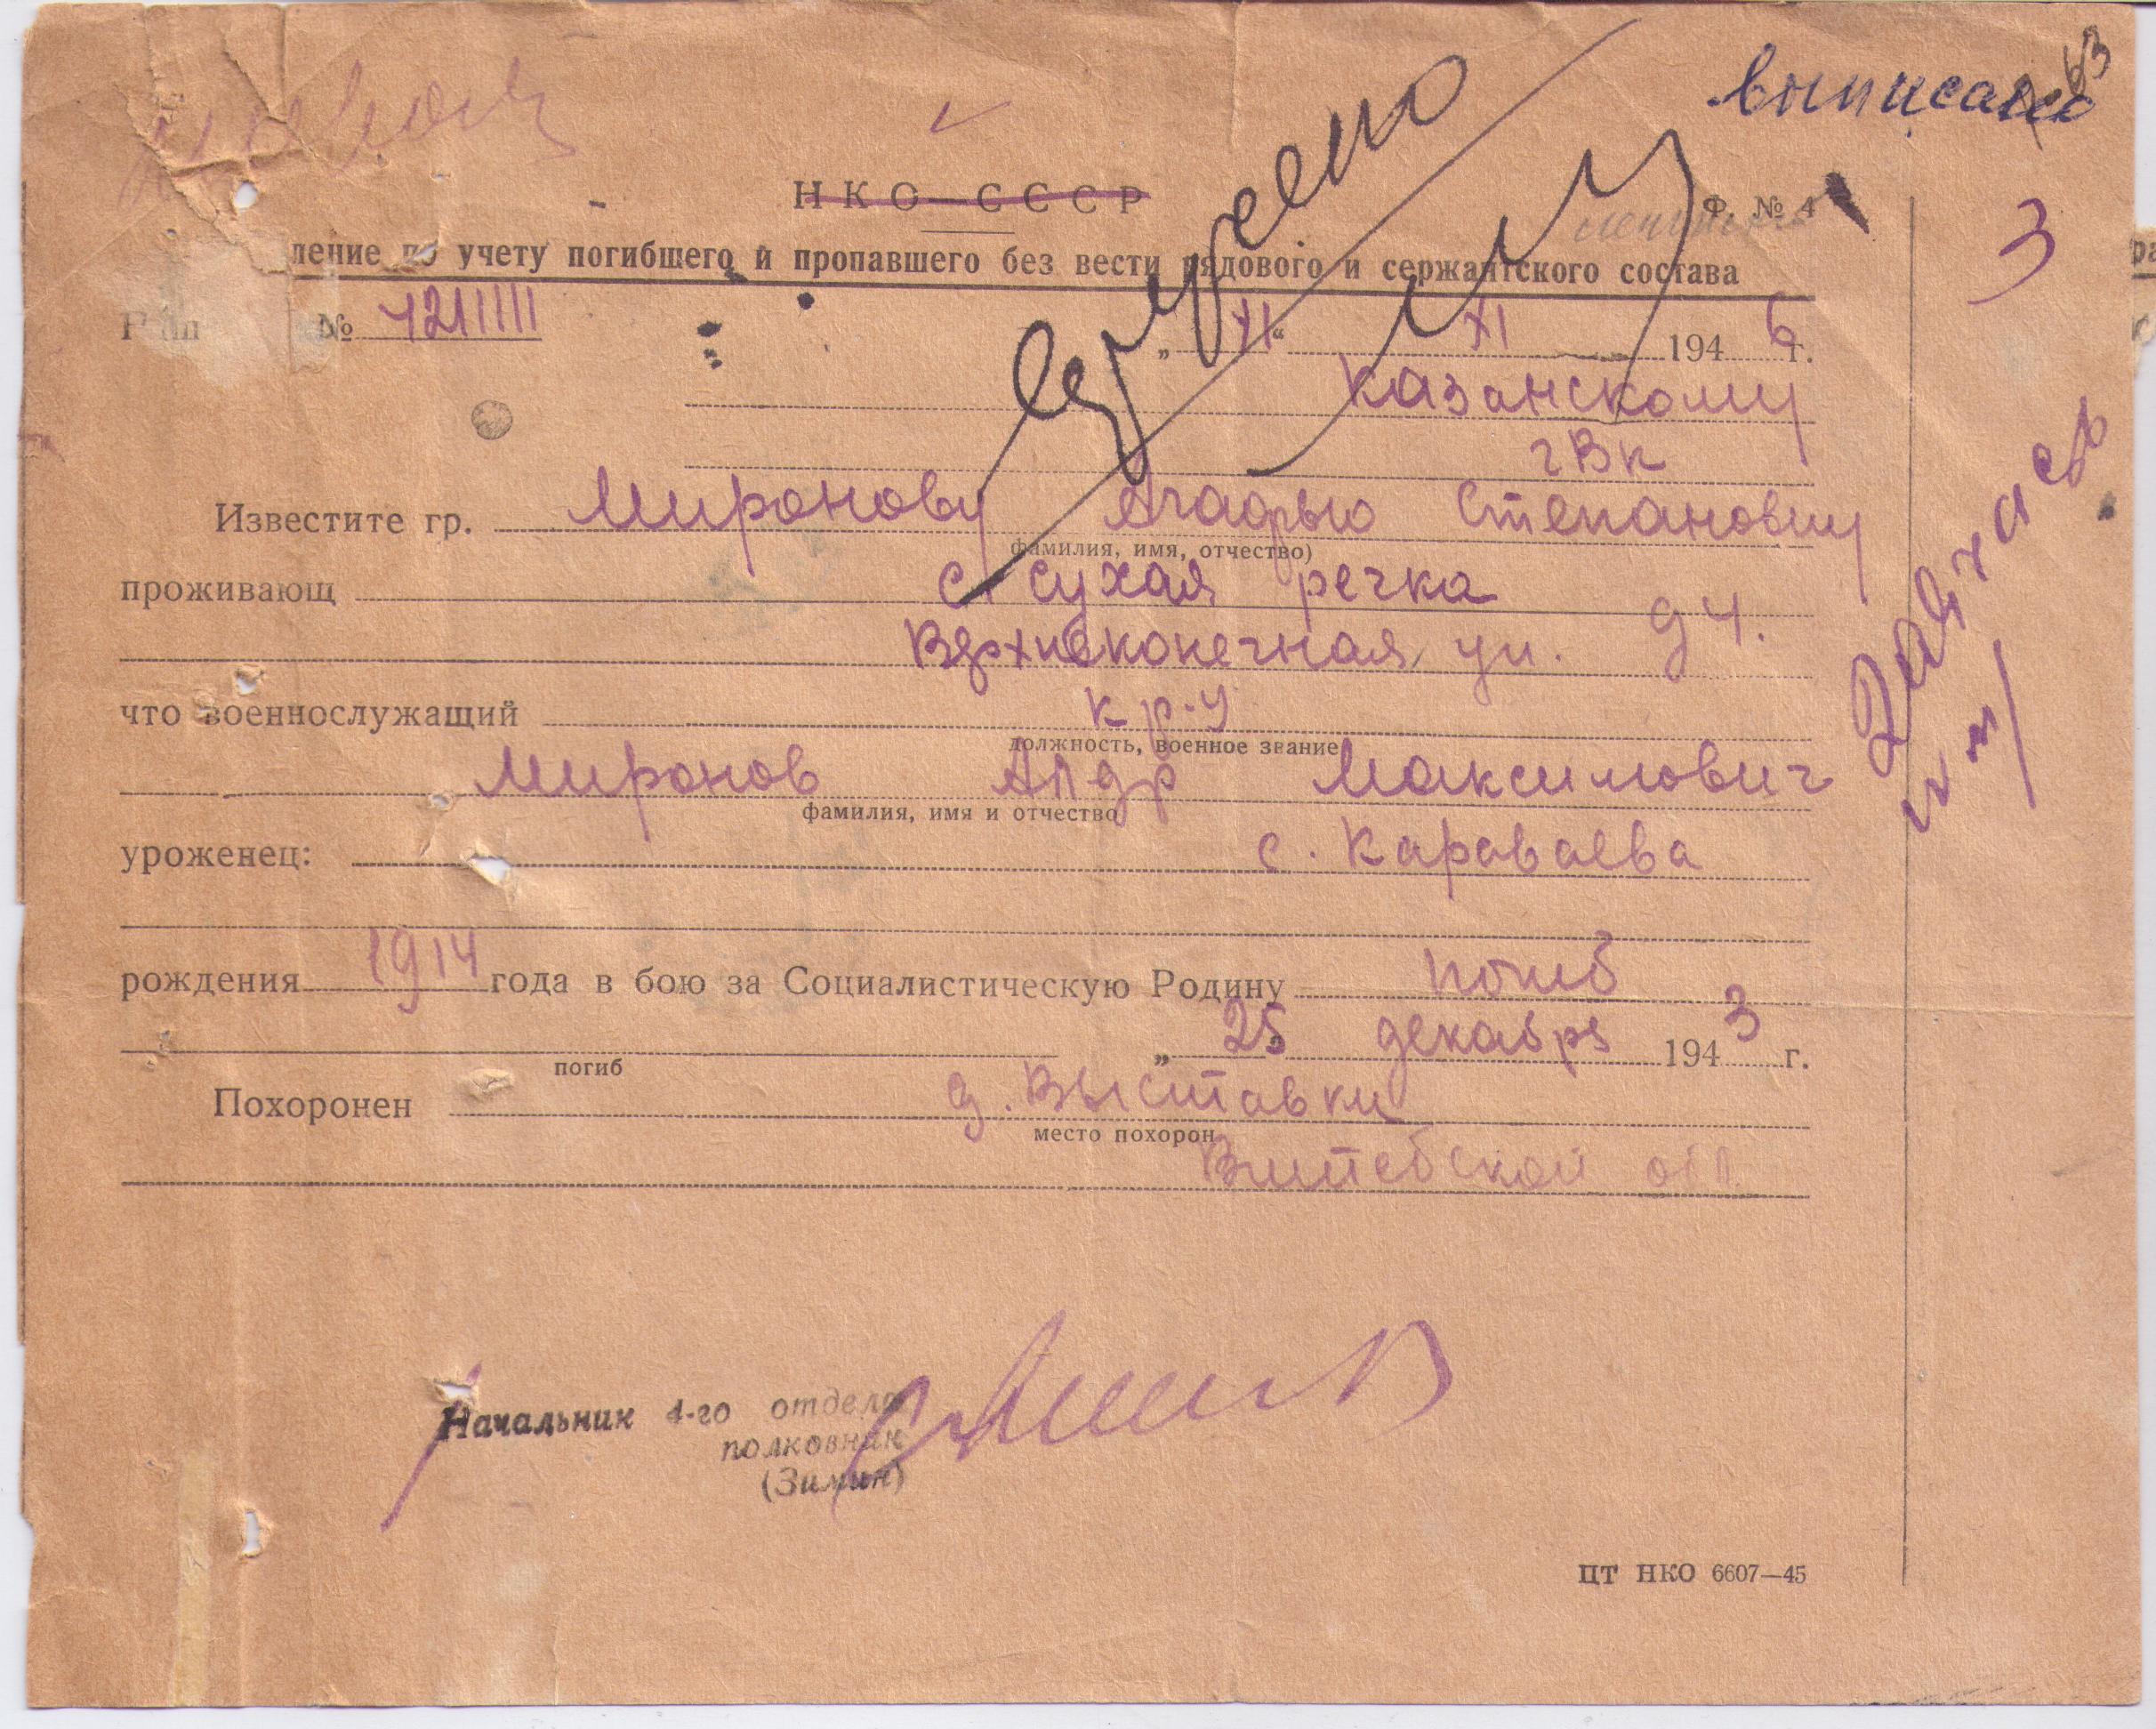 выписано
НКО—СССР
Ф. № 4
ление по учету погибшего и пропавшего без вести рядового и сержантского состава
3
№ 4211111
„ XI “ XI 194 6 г.
вручено
Казанскому
гвк
Известите гр. Миронову Агафью Степановну
фамилия, имя, отчество)
проживающ с. сухая речка
ул. д 4.
что военнослужащий кр-ц
должность, военное звание
Миронов Андр Максимович
фамилия, имя и отчество
уроженец: с. Караваева
рождения 1914 года в бою за Социалистическую Родину погиб
погиб „ 25 декабря 194 3 г.
Похоронен д. Выставки
место похорон
Витебской обл.
Начальник 4-го отдела
полковник
(Зимин)
ЦТ НКО 6607—45